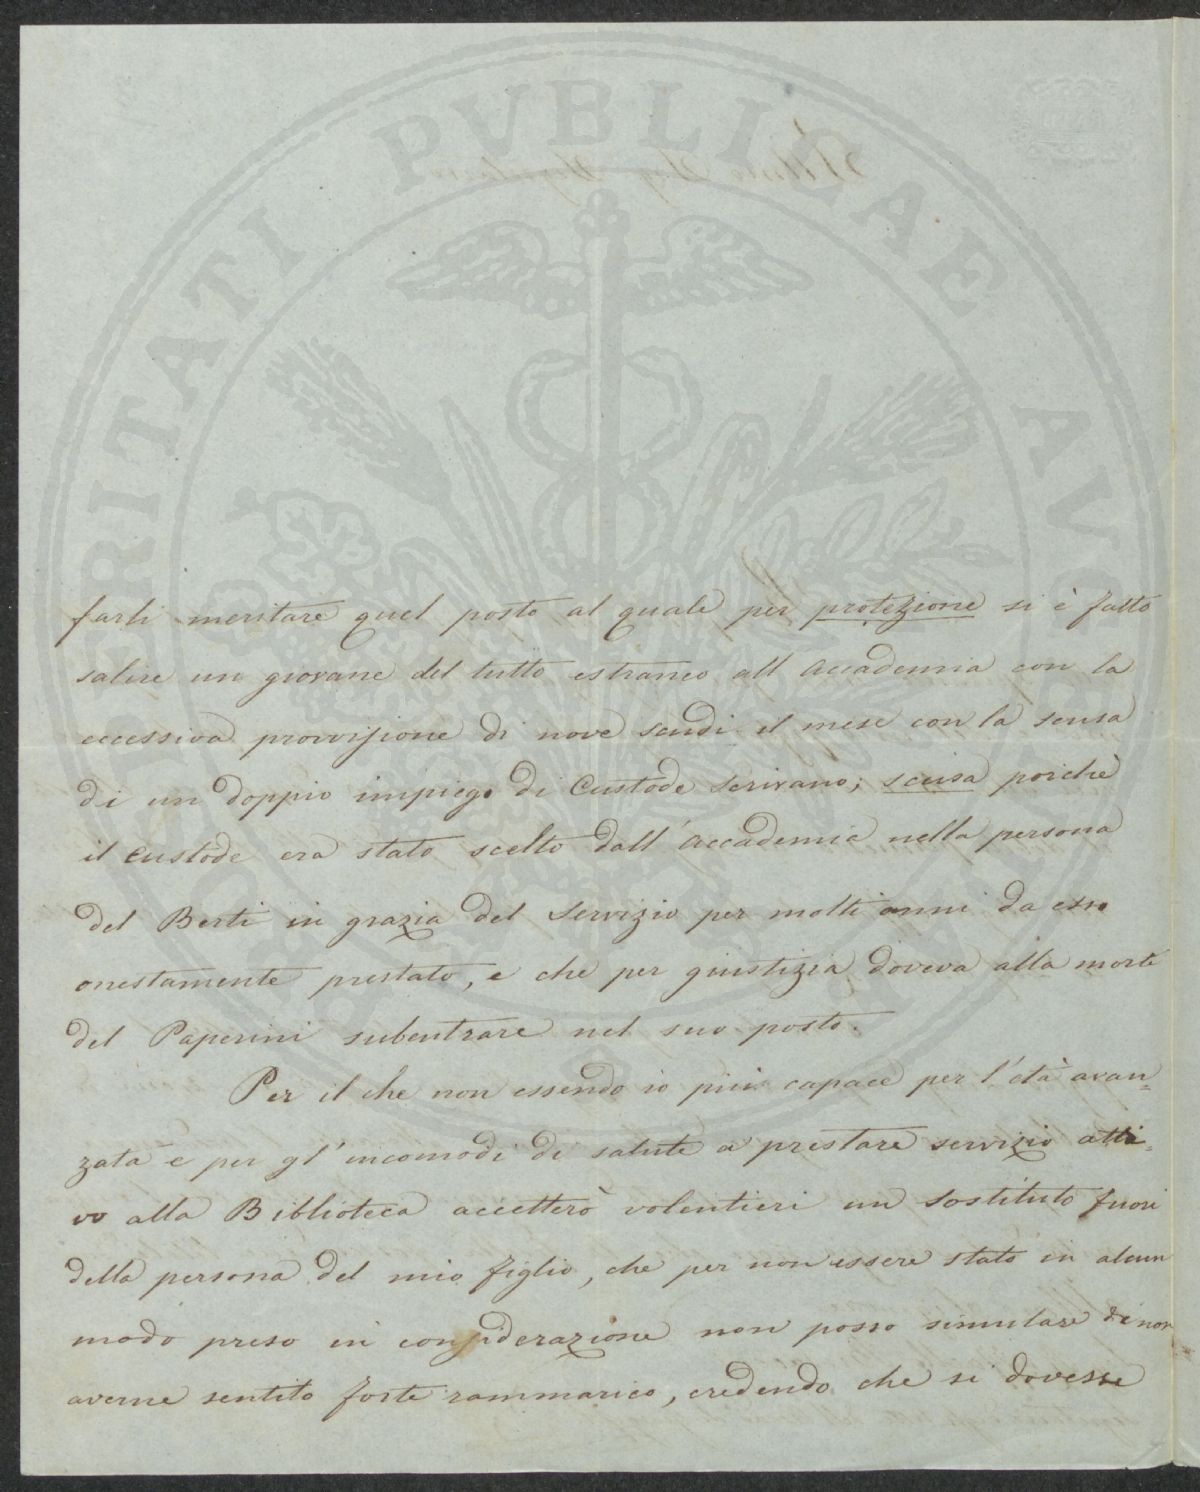 PROSPERITATI PVBLICAE AVGENDAE
farli meritare quel posto al quale per protezione si è fatto
salire un giovane del tutto estraneo all Accademia con la
eccessiva provvisione di nove scudi il mese con la scusa
di un doppio impiego di Custode scrivano; scusa poichè
il Custode era stato scelto dall'Accademia nella persona
del Berti in grazia del servizio per molti anni da esso
onestamente prestato, e che per giustizia doveva alla morte
del Paperini subentrare nel suo posto.
Per il che non essendo io più capace per l'età avan=
zata e per gl'incomodi di salute a prestare servizio atti=
vo alla Biblioteca accetterò volentieri un sostituto fuori
della persona del mio figlio, che per non essere stato in alcun
modo preso in considerazione non posso simulare di non
averne sentito forte rammarico, credendo che si dovesse